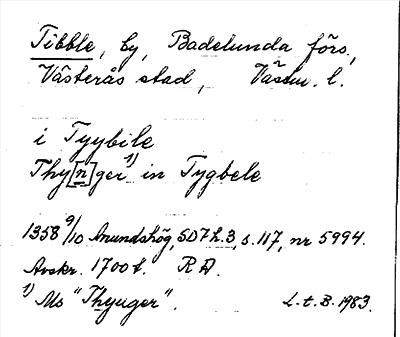 Tibble, by, Badelunda förs,
Västerås stad, Västm. l.
i Tyybile
Thy[n]ger¹⁾ in Tygbele
1358 9/10 Anundshög, SD7 h.3, s. 117, nr 5994.
Avskr. 1700t. RA.
¹⁾ Ms "Thyuger". L.t.B. 1983.